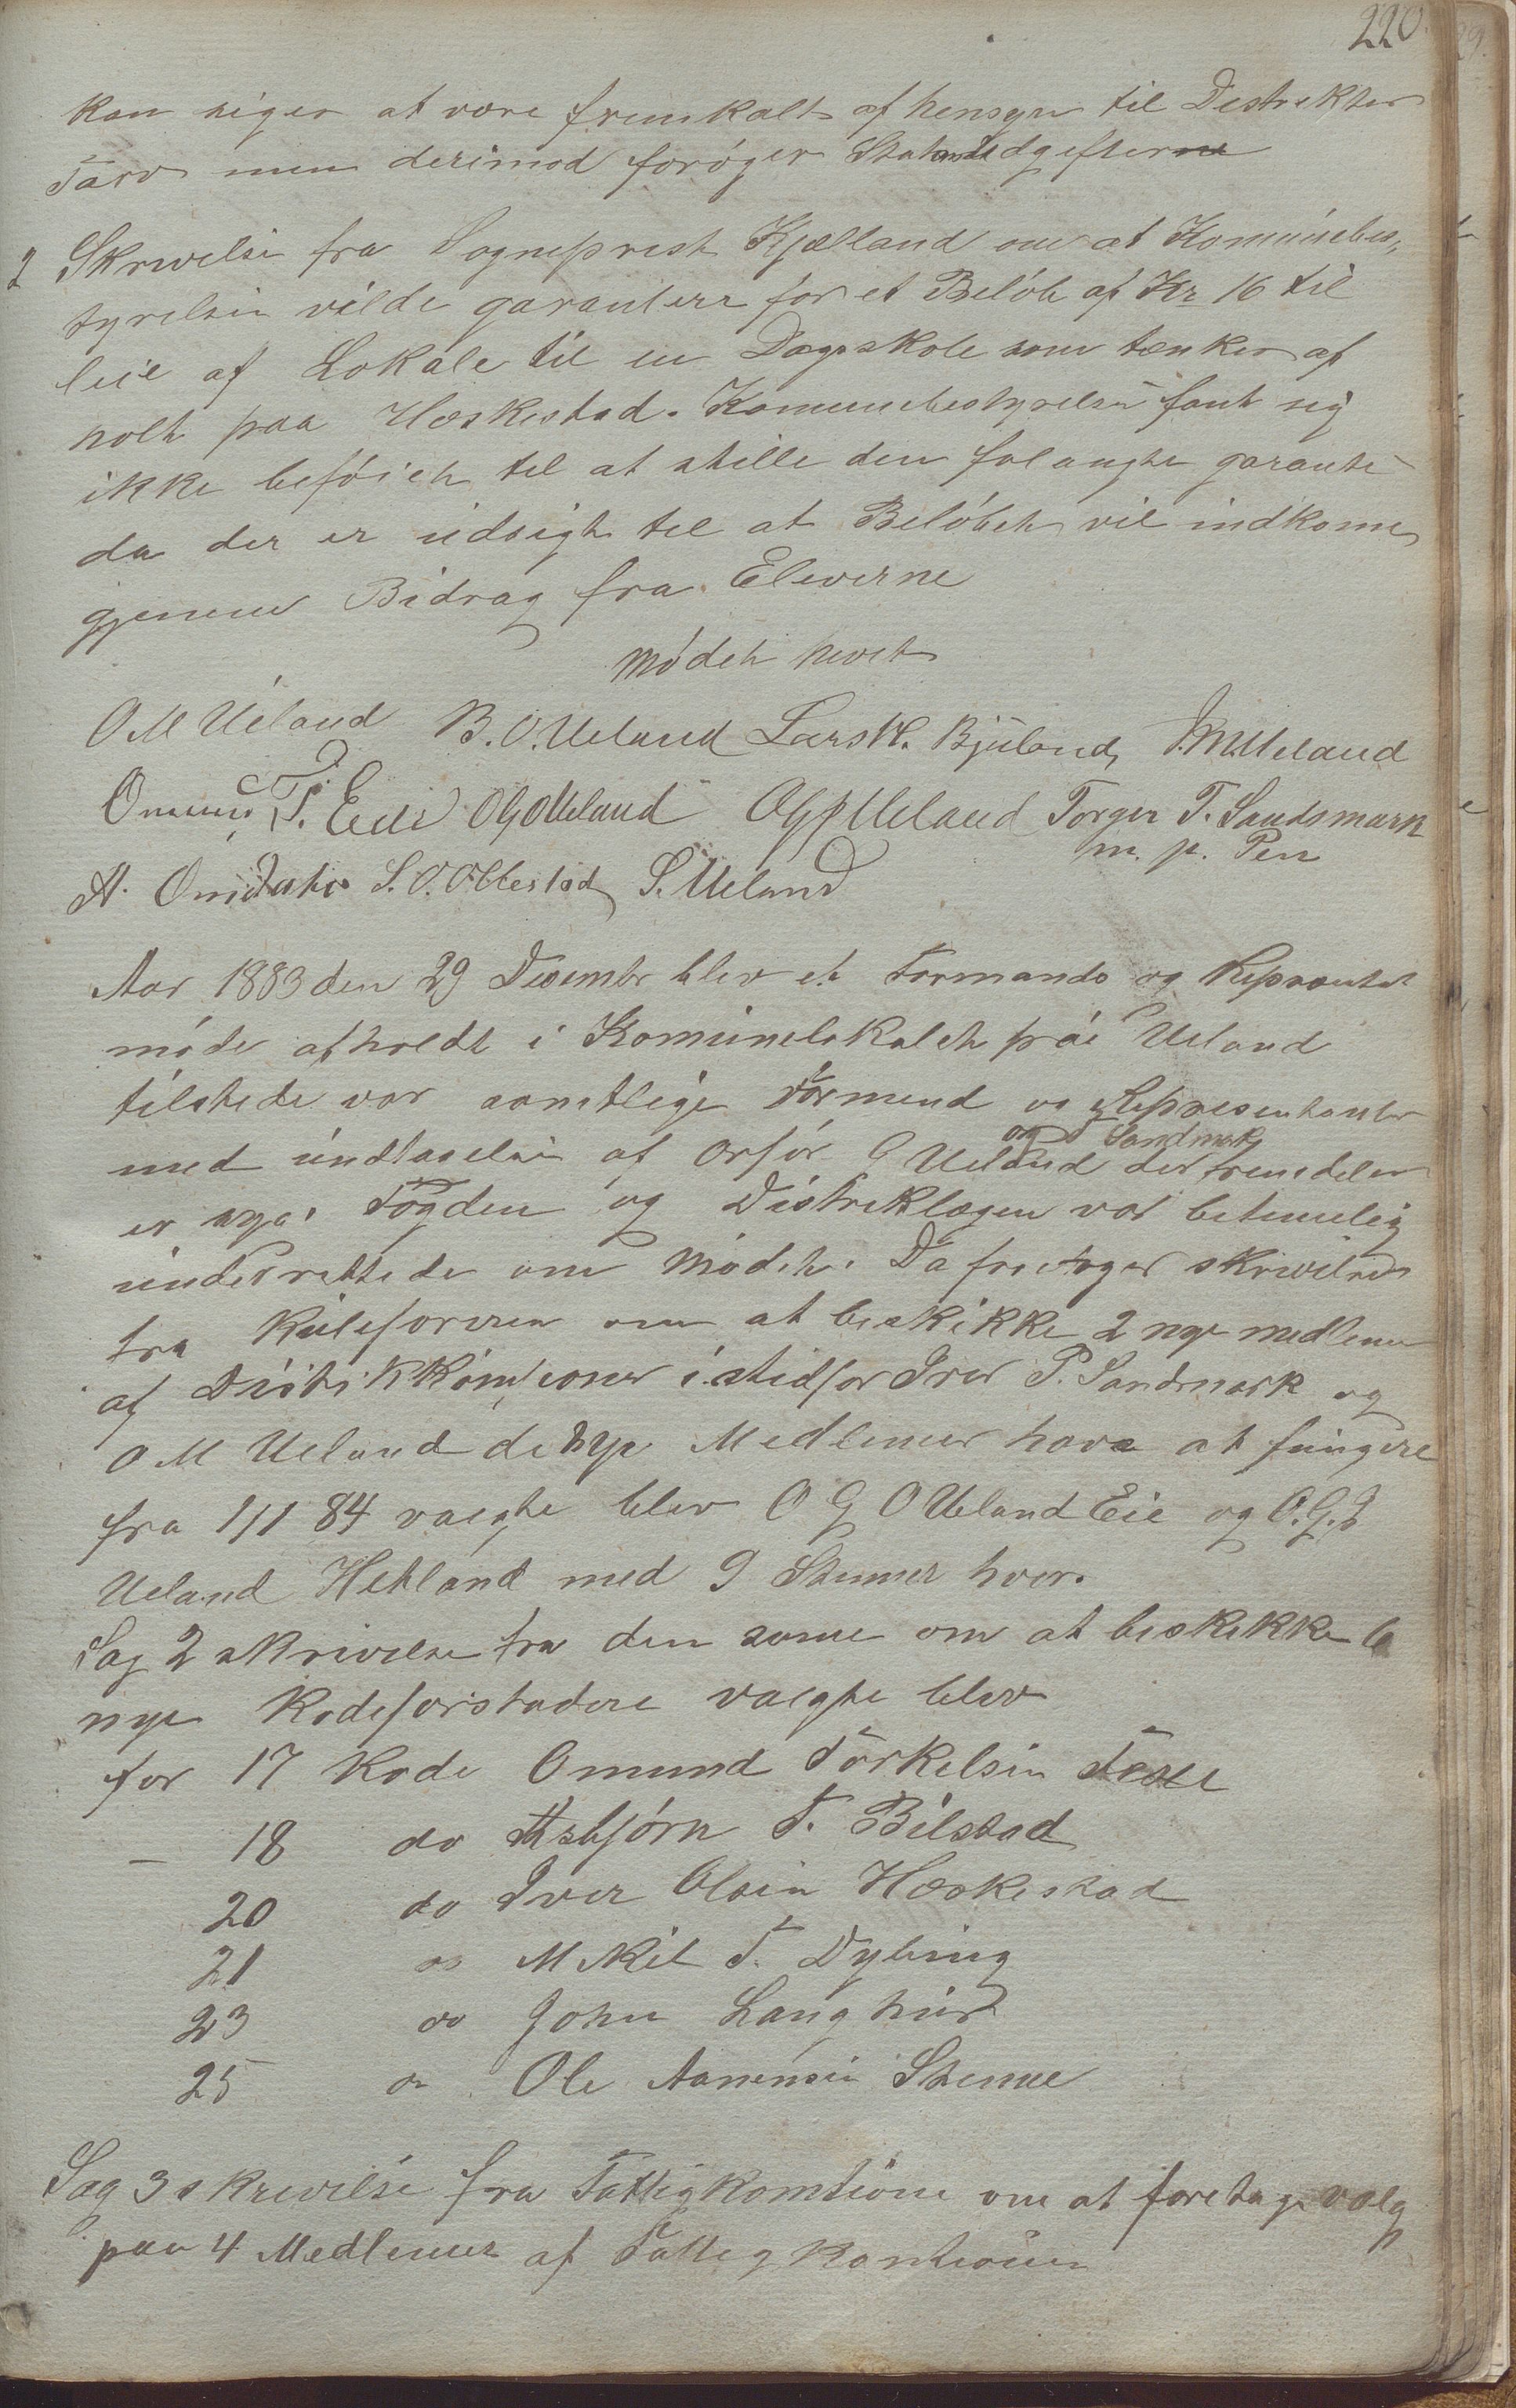 220
kan siges at være fremkalt af hensyn til Destrikter
Tarv men derimod forøger Statsudgifterne
2 Skrivelse fra Sogneprest Kjælland om at Komunebes„
tyrelsen vilde garantere for et Beløb af Kr 16 til
leie af Lokale til en Dagskole som tænkes af
holt paa Heskestad. Komunebestyrelsen fant sig
ikke beføiet til at stille den forlangte garanti
da der er udsigt til at Beløbet vil indkome
gjenem Bidrag fra Eleverne
Mødet hevet
O M Ueland B. O. Ueland Lars H. Bjuland J. M. Ueland
Omund T. Eide O G O Ueland O G J Ueland Torger T. Sandsmark
m. p. Pen
A. S. O. Ollestad S. Ueland
Aar 1883 den 29 Desembr blev et Formands og Representat
møde afholdt i Komunelokalet på Ueland
tilstede var samtlige Formend og Representanter
med undtagelse af Orfør G Ueland der fremdeles
og T Sandmark
er syg. Fogden og Distriktlægen var betimelig
underrettede om Mødet. Da foretoges skrivelse
fra Rulleforeren om at beskikke 2 nye medlemer
af Distrikkomsioner i stedfor Iver P. Sandmark og
O M Ueland de nye Medlemer have at fungere
fra 1/1 84 valgte blev O G O Ueland Eie og O. G. J
Ueland Hetland med 9 Stemer hver.
Sag 2 skrivelse fra den same om at beskikke 6
nye Rodeforstadere valgte blev
for 17 Rode Omund Torkelsen Tese
— 18 do Asbjørn T. Bilstad
20 do Iver Olsen Heskestad
21 do Mikel T. Dybing
23 do John Langhus
25 do Ole Aanensen Steme
Sag 3 skrivelse fra Fattigkomsione om at foretage valg
paa 4 Medlemer af Fattigkomsionen